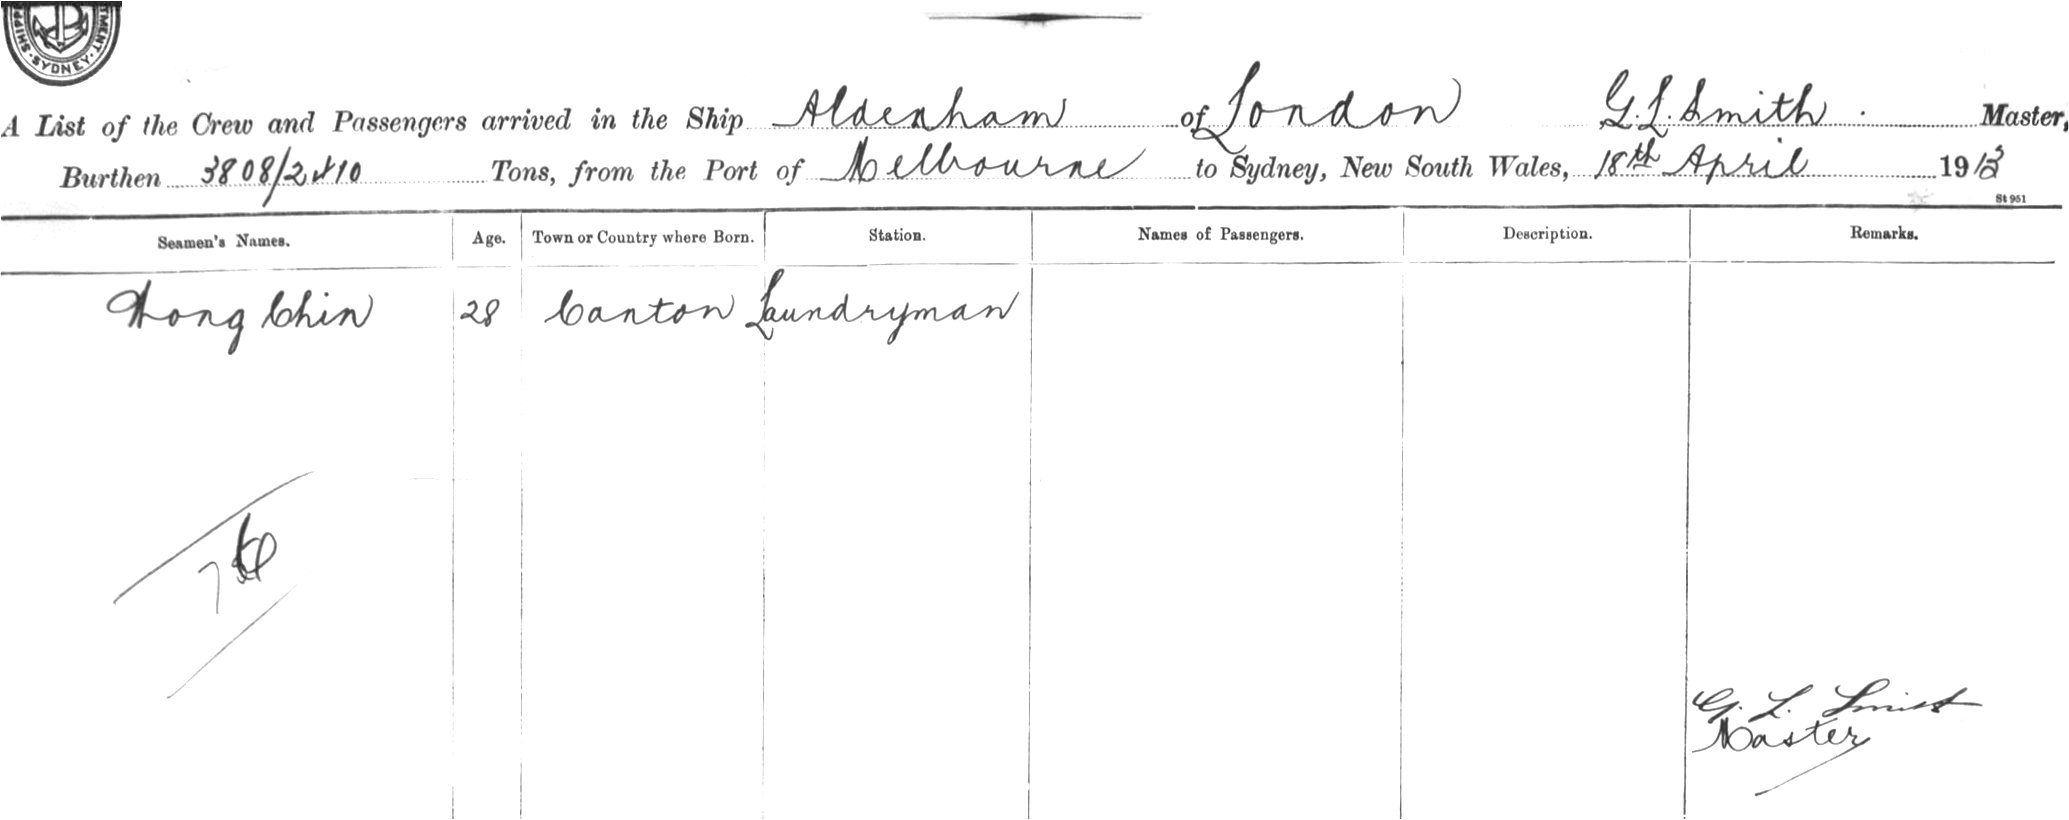 SHIPP MENT. SYDNEY.
A List of the Crew and Passengers arrived in the Ship Aldenham of London G. L. Smith Master,
Burthen 3808/2410 Tons, from the Port of Melbourne to Sydney, New South Wales, 18th April 1913
St 951
Seamen's Names. Age. Town or Country where Born. Station. Names of Passengers. Description. Remarks.
Wong Chin 28 Canton Laundryman
G. L. Smith
Master